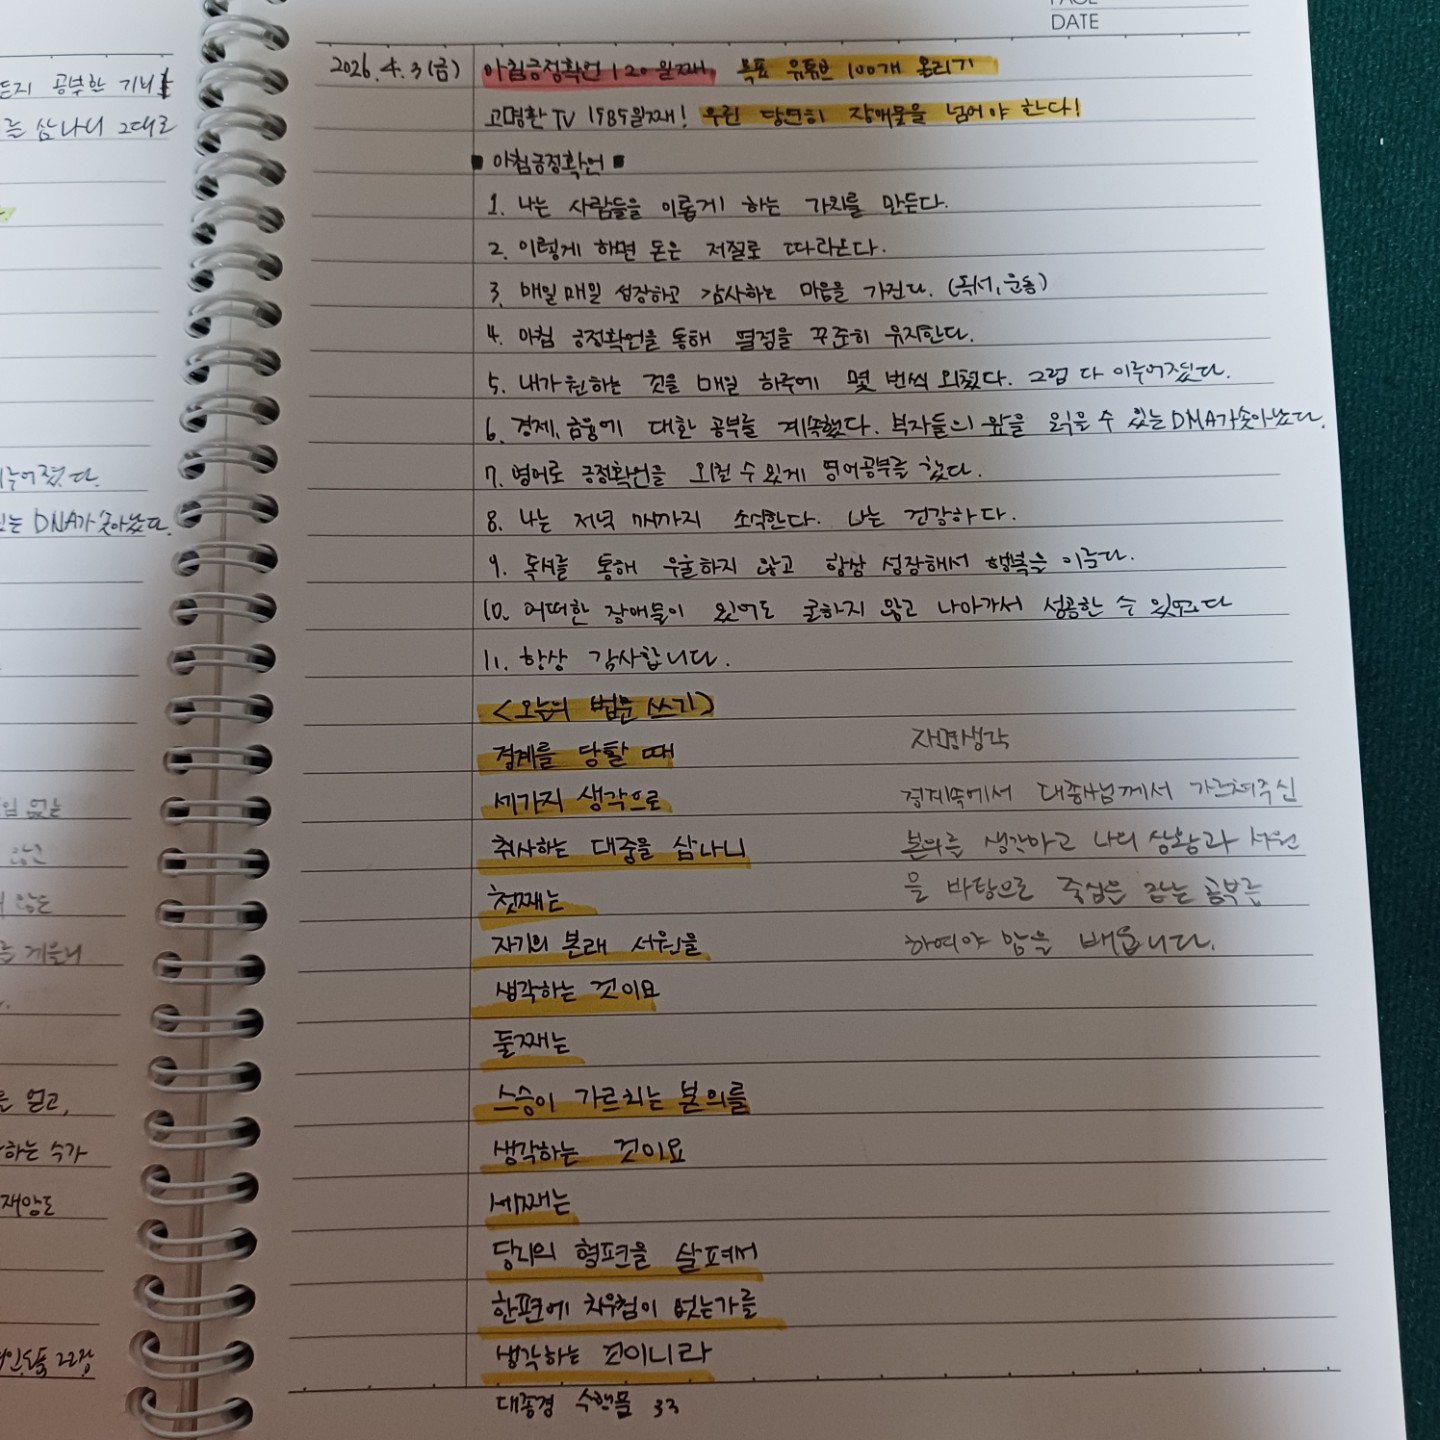 PAGE
DATE
든지 공부한 기시
를 삼나니 그대로
이루어졌다.
있는 DNA가 솟아났다.
없는
않고
않도
를 얻고,
하는 수가
재앙도
22장
2026. 4. 3 (금) 아침긍정확언 120일째, 목표 유튜브 100개 올리기
고명환TV 1585일째! 우린 당연히 장애물을 넘어야 한다!
■ 아침긍정확언 ■
1. 나는 사람들을 이롭게 하는 가치를 만든다.
2. 이렇게 하면 돈은 저절로 따라온다.
3. 매일매일 성장하고 감사하는 마음을 가진다. (독서, 운동)
4. 아침 긍정확언을 통해 열정을 꾸준히 유지한다.
5. 내가 원하는 것을 매일 하루에 몇 번씩 외쳤다. 그럼 다 이루어졌다.
6. 경제, 금융에 대한 공부를 계속했다. 부자들의 앞을 읽을 수 있는 DNA가 솟아났다.
7. 영어로 긍정확언을 외칠 수 있게 영어공부를 했다.
8. 나는 저녁 7시까지 소식한다. 나는 건강하다.
9. 독서를 통해 우울하지 않고 항상 성장해서 행복을 이룬다.
10. 어떠한 장애물이 있어도 굴하지 않고 나아가서 성공한 수 있었다
11. 항상 감사합니다.
<오늘의 법문 쓰기>
경계를 당할 때
세가지 생각으로
취사하는 대중을 삼나니
첫째는
자기의 본래 서원을
생각하는 것이요
둘째는
스승이 가르치는 본의를
생각하는 것이요
세째는
당시의 형편을 살펴서
한편에 치우침이 없는가를
생각하는 것이니라
대종경 수행품 33
자명생각
경계속에서 대종사님께서 가르쳐주신
본의를 생각하고 나의 상황과 서원
을 바탕으로 중심을 잡는 공부를
하여야 함을 배웁니다.